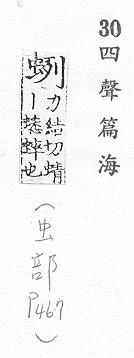 30 四聲篇海
蛚 力結切蜻
丨蟋蟀也
(虫部 P467)